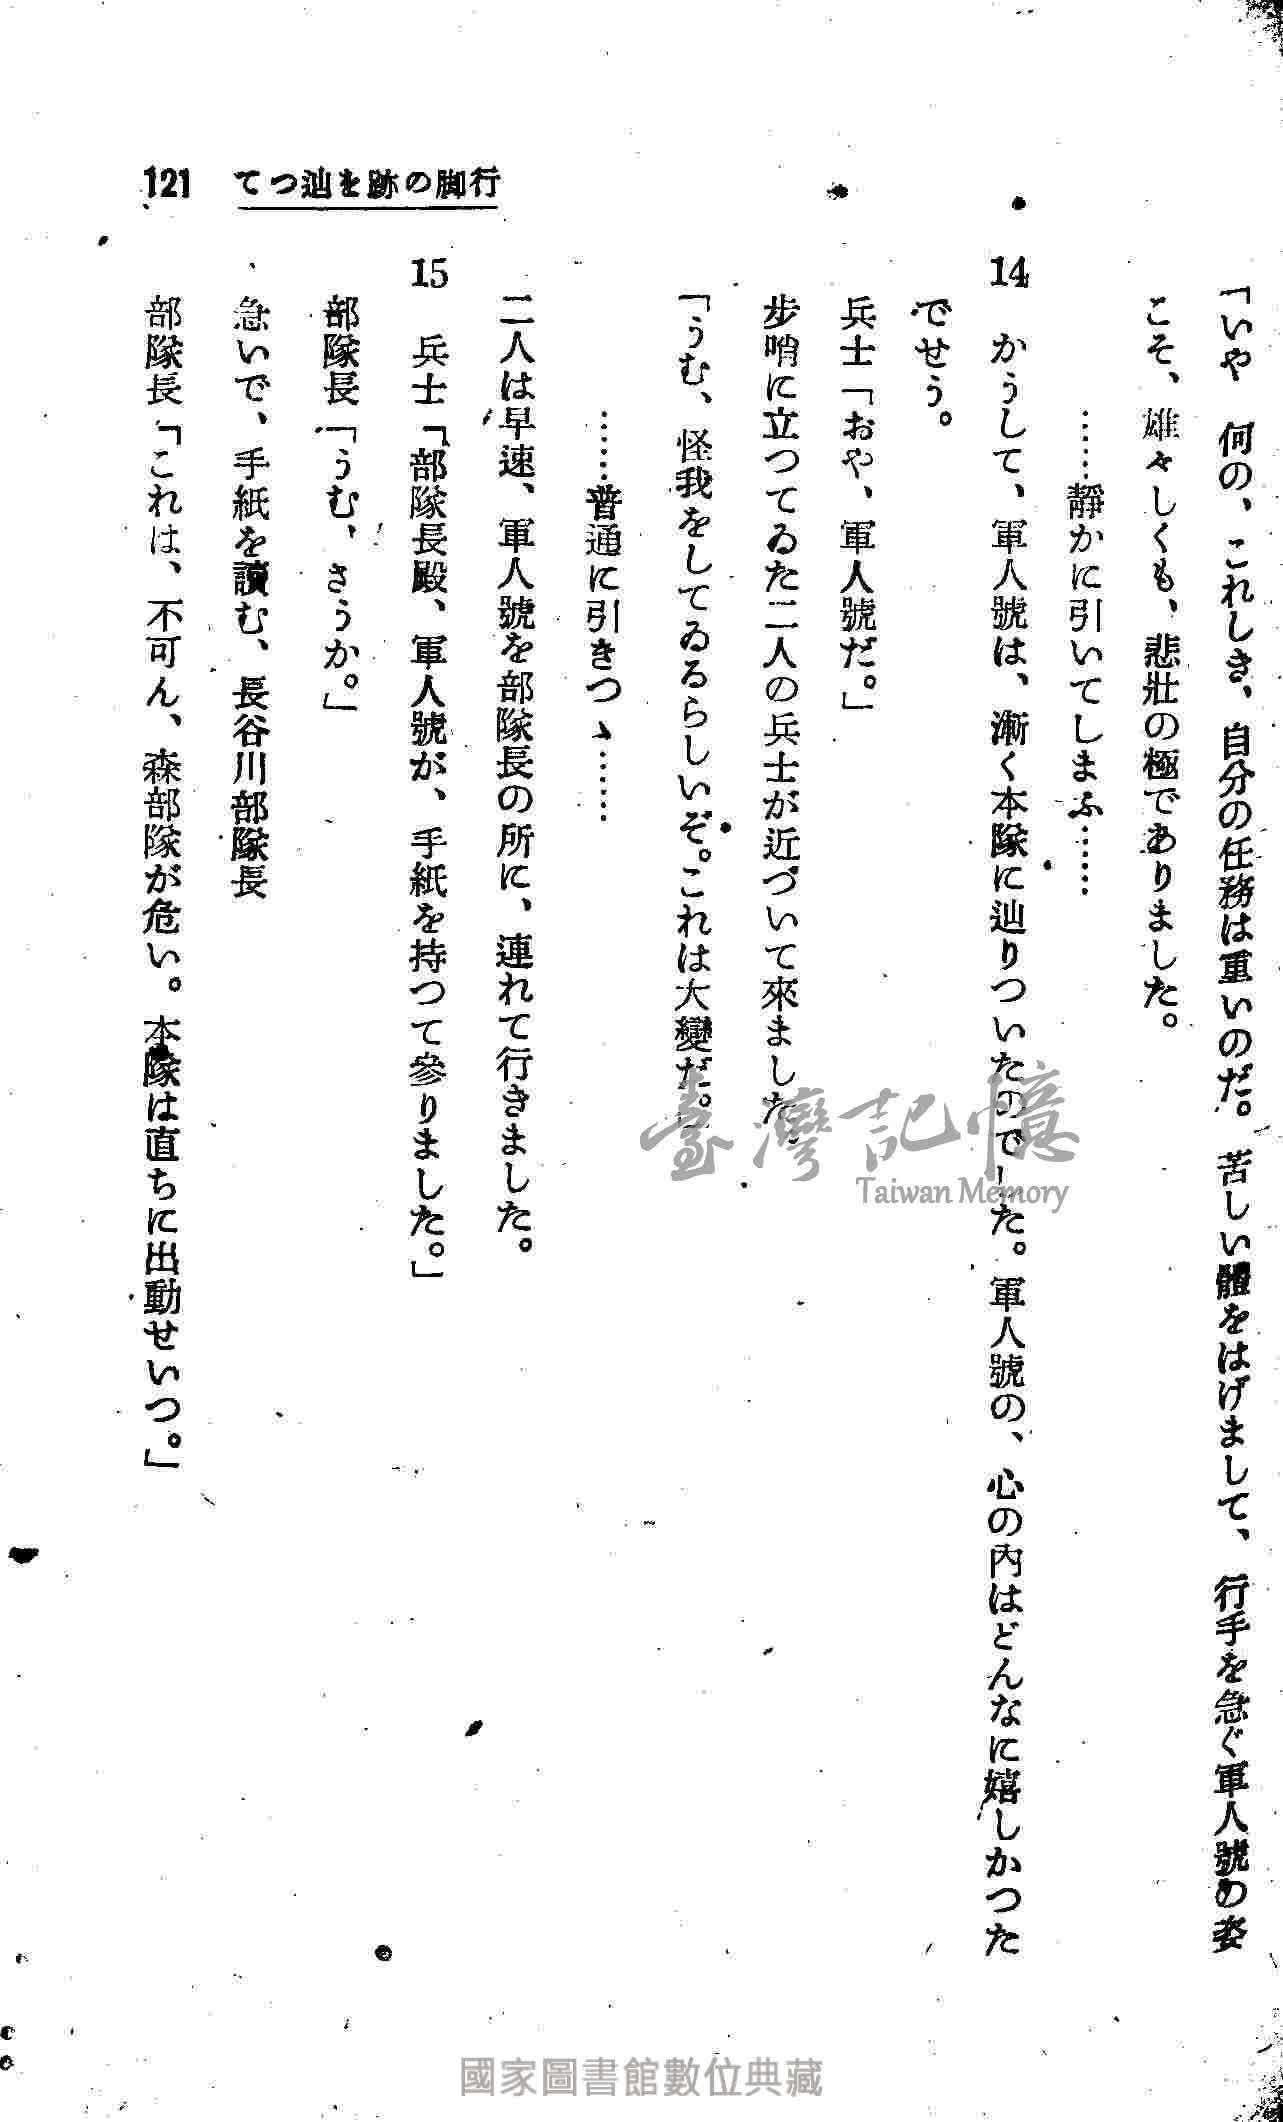 行脚の跡を辿つて 121
「いや　何の、これしき、自分の任務は重いのだ。苦しい體をはげまして、行手を急ぐ軍人號の姿
こそ、雄々しくも、悲壯の極でありました。
……靜かに引いてしまふ……
14　かうして、軍人號は、漸く本隊に辿りついたのでした。軍人號の、心の內はどんなに嬉しかつた
でせう。
兵士「おや、軍人號だ。」
步哨に立つてゐた二人の兵士が近づいて來ました。
「うむ、怪我をしてゐるらしいぞ。これは大變だ。」
……普通に引きつゝ……
二人は早速、軍人號を部隊長の所に、連れて行きました。
15　兵士「部隊長殿、軍人號が、手紙を持つて參りました。」
部隊長「うむ、さうか。」
急いで、手紙を讀む、長谷川部隊長
部隊長「これは、不可ん、森部隊が危い。本隊は直ちに出動せいつ。」
臺灣記憶
Taiwan Memory
國家圖書館數位典藏